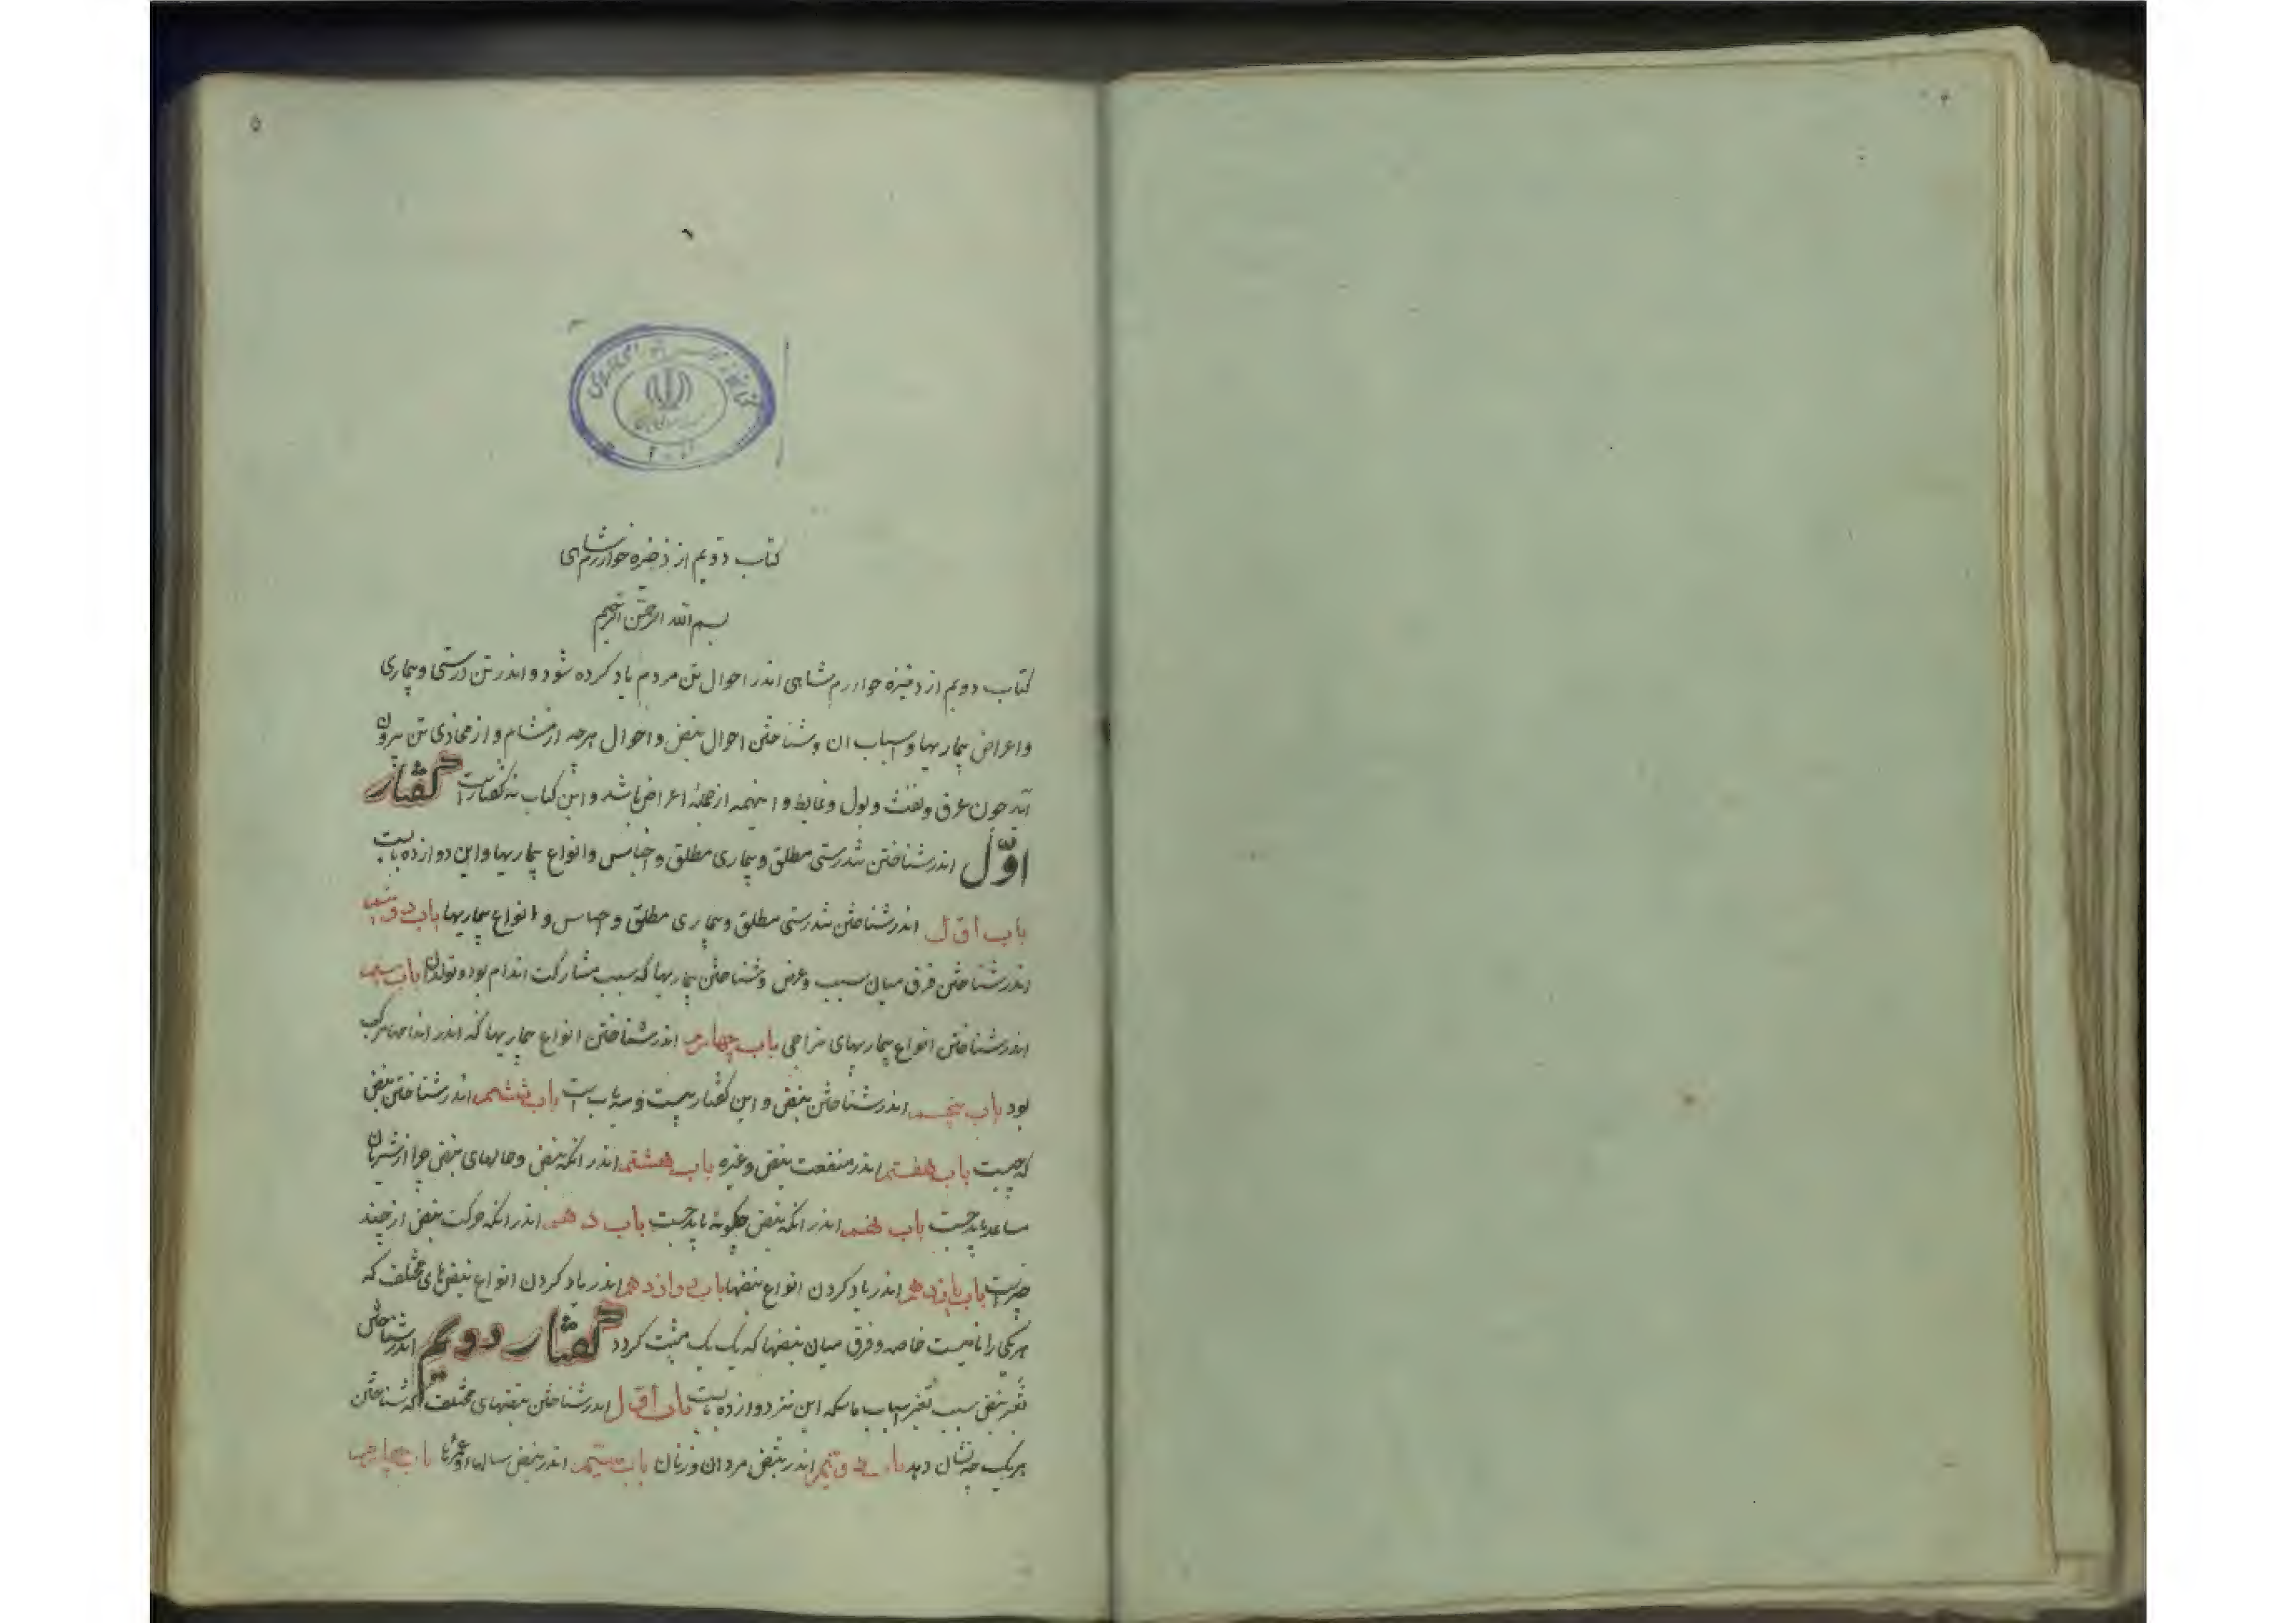 ۵
کتاب دویم از ذخیره خوارزمشاهی
بسم الله الرحمن الرحیم
کتاب دویم از ذخیره خوارزم شاهی اندر احوال تن مردم یاد کرده شود و اندر تن درستی و بیماری
و اعراض بیماریها و اسباب ان و شناختن احوال نبض و احوال هرچه از مشام و از مجاذی تن بیرون
آید چون عرق و نفث و بول و غایط و اینهمه از جملهٔ اعراض باشد و این کتاب نه گفتار است گفتار
اوّل اندر شناختن تندرستی مطلق و بیماری مطلق و اجناس و انواع بیماریها و این دوازده بابست
باب اوّل اندر شناختن تندرستی مطلق و بیماری مطلق و اجناس و انواع بیماریها باب دویم
اندر شناختن فرق میان سبب و عرض و شناختن بیماریها که سبب مشارکت اندام بود و تولد آن باب سیم
اندر شناختن انواع بیماریهای مزاجی باب چهارم اندر شناختن انواع بیماریها که اندر اندامهاء مرکب
بود باب پنجم اندر شناختن نبض و این گفتار بیست و سه باب است باب ششم اندر شناختن نبض
که چیست باب هفتم اندر منفعت نبض و غیره باب هشتم اندر انکه نبض و حالهای نبض چرا از شریان
ساعد باید جست باب نهم اندر انکه نبض چکونه باید جست باب دهم اندر انکه حرکت نبض از چند
چیز است باب یازدهم اندر یاد کردن انواع نبضها باب دوازدهم اندر یاد کردن انواع نبض های مختلف که
هریکی را نامیست خاصه و فرق میان نبضها که یک یک مثبت کردد گفتار دویم اندر شناختن
تغیر نبض سبب تغیر اسباب ماسکه این نیز دوازده بابست باب اوّل اندر شناختن نبضهای مختلف که شناختن
هریک چه نشان دهد باب دویم اندر نبض مردان و زنان باب سیّم اندر نبض سالها و عمرها باب چهارم